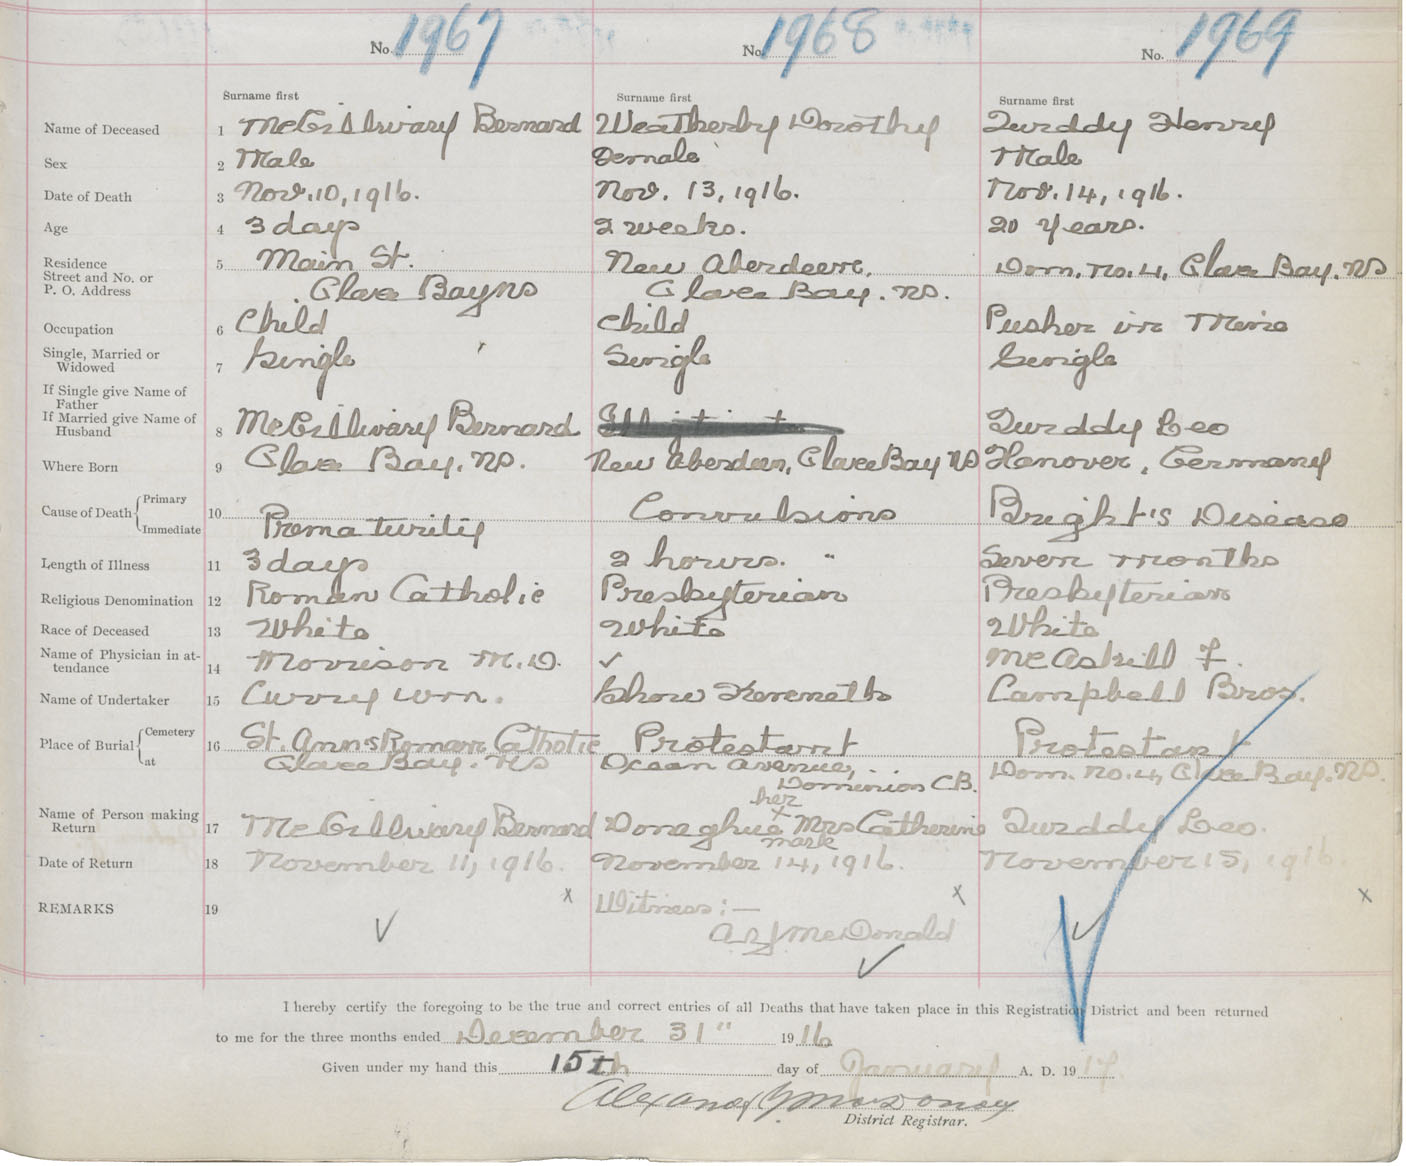 No. 1967 No. 1968 No. 1969
Surname first Surname first Surname first
Name of Deceased 1 McGillivary Bernard Weatherby Dorothy Turddy Henry
Sex 2 Male Female Male
Date of Death 3 Nov. 10, 1916. Nov. 13, 1916. Nov. 14, 1916.
Age 4 3 days 2 weeks. 20 years.
Residence Street and No. or P. O. Address 5 Main St. New Aberdeen, Dom. No. 4, Glace Bay. NS
Glace Bay NS Glace Bay. NS.
Occupation 6 Child Child Pusher in Mine
Single, Married or Widowed 7 Single Single Single
If Single give Name of Father
If Married give Name of Husband 8 McGillivary Bernard Turddy Leo
Where Born 9 Glace Bay. NS. New Aberdeen, Glace Bay NS Hanover, Germany
Cause of Death { Primary Immediate 10 Prematurity Convulsions Bright's Disease
Length of Illness 11 3 days 2 hours. " Seven months
Religious Denomination 12 Roman Catholic Presbyterian Presbyterian
Race of Deceased 13 White White White
Name of Physician in attendance 14 Morrison M.D. ✓ McAskill F.
Name of Undertaker 15 Curry Wm. Show Kenneth Campbell Bros.
Place of Burial { Cemetery at 16 St. Anns Roman Catholic Protestant Protestant
Glace Bay. NS Ocean Avenue, Dom. No. 4, Glace Bay. NS.
Dominion C.B.
her
Name of Person making Return 17 McGillivary Bernard Donaghue x Mrs Catherine Turddy Leo.
mark
Date of Return 18 November 11, 1916. November 14, 1916. November 15, 1916.
x x x
REMARKS 19 ✓ Witness:— ✓
A J McDonald
✓
I hereby certify the foregoing to be the true and correct entries of all Deaths that have taken place in this Registration District and been returned
to me for the three months ended December 31" 1916
Given under my hand this 15th day of January A. D. 1917.
District Registrar.